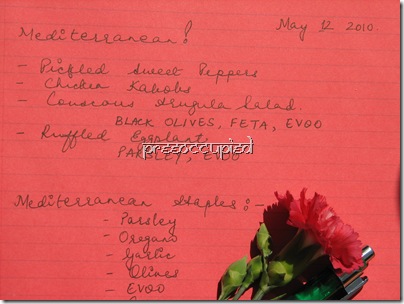 May 12 2010
Mediterranean!
- Pickled Sweet Peppers
- Chicken Kabobs
- Couscous Arugula Salad.
BLACK OLIVES, FETA, EVOO
- Ruffled Eggplant,
PARSLEY, EVOO
preoccupied
Mediterranean Staples:-
- Parsley
- Oregano
- Garlic
- Olives
- EVOO